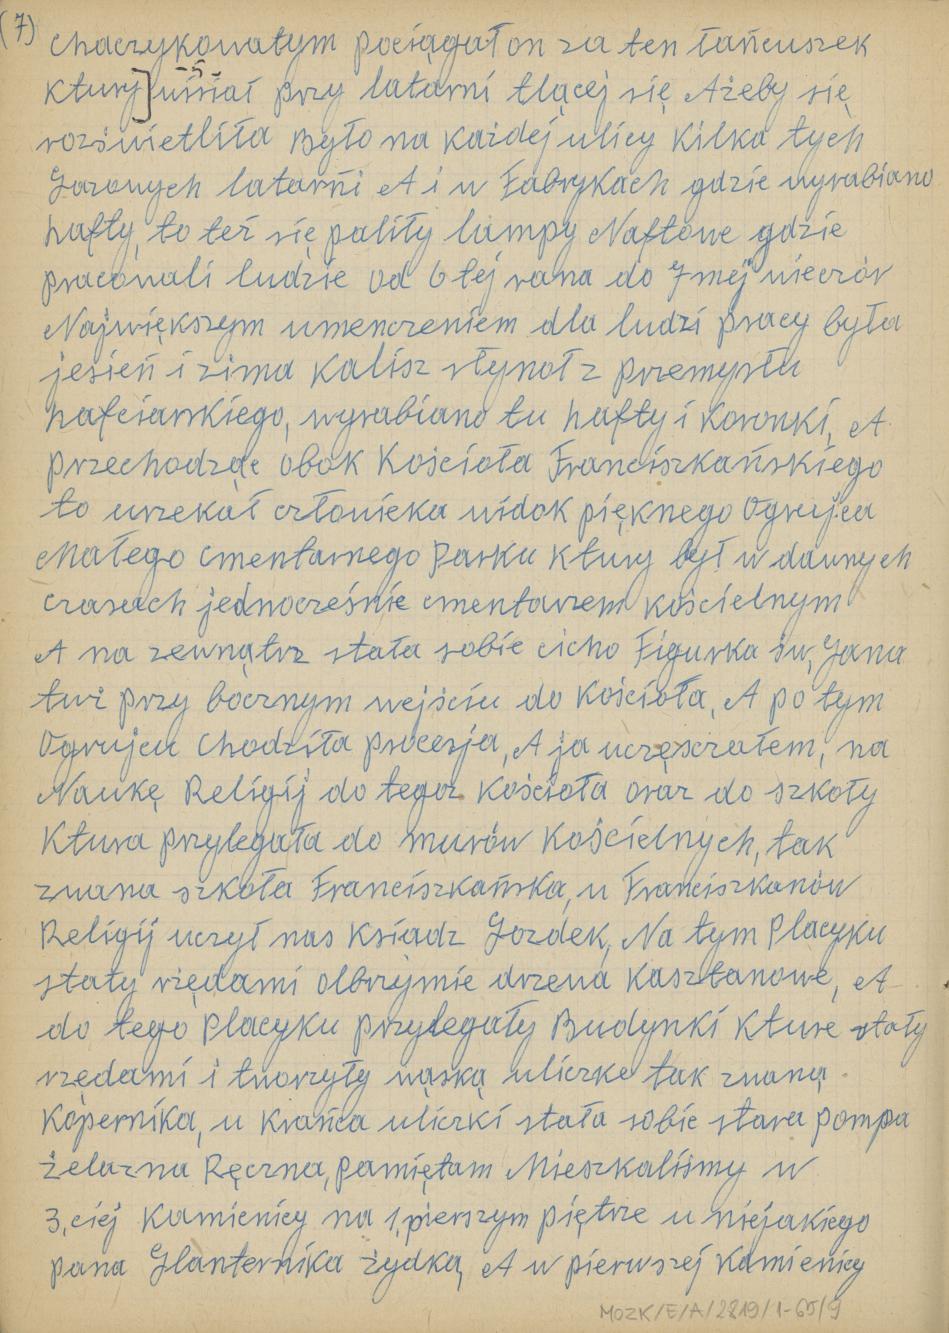 (7) chaczykowatym pociągał on za ten łańcuszek
-5-
ktury] wisiał przy latarni tlącej się Ażeby się
rozświetliła Było na każdej ulicy kilka tych
Gazowych latarni A i w Fabrykach gdzie wyrabiano
hafty, to też się paliły lampy Naftowe gdzie
pracowali ludzie od 6 tej rana do 7 mej wieczór
Największym umenczeniem dla ludzi pracy była
jesień i zima Kalisz słynoł z przemysłu
hafciarskiego, wyrabiano tu hafty i Koronki, A
przechodząc obok Kościoła Franciszkańskiego
to urzekał człowieka widok pięknego Ogrujca
Małego cmentarnego parku Ktury był w dawnych
czasach jednocześnie cmentarzem kościelnym
A na zewnątrz stała sobie cicho Figurka św, Jana
tuż przy bocznym wejściu do Kościoła, A po tym
Ogrujcu Chodziła procesja, A ja uczęszczałem, na
Naukę Religij do tegoż Kościoła oraz do szkoły
Ktura przylegała do murów Kościelnych, tak
zwana szkoła Franciszkańska, u Franciszkanów
Religij uczył nas Ksiadz Gozdek, Na tym Placyku
stały rzędami olbrzymie drzewa Kasztanowe, A
do tego Placyku przylegały Budynki Kture stały
rzędami i tworzyły wąską uliczke tak zwaną
Kopernika, u Krańca uliczki stała sobie stara pompa
żelazna Ręczna, pamiętam Mieszkaliśmy w
3,ciej Kamienicy na 1,pierszym piętrze u niejakiego
pana Glanternika żydka, A w pierwszej Kamienicy
MOZK/E/A/2819/1-65/9